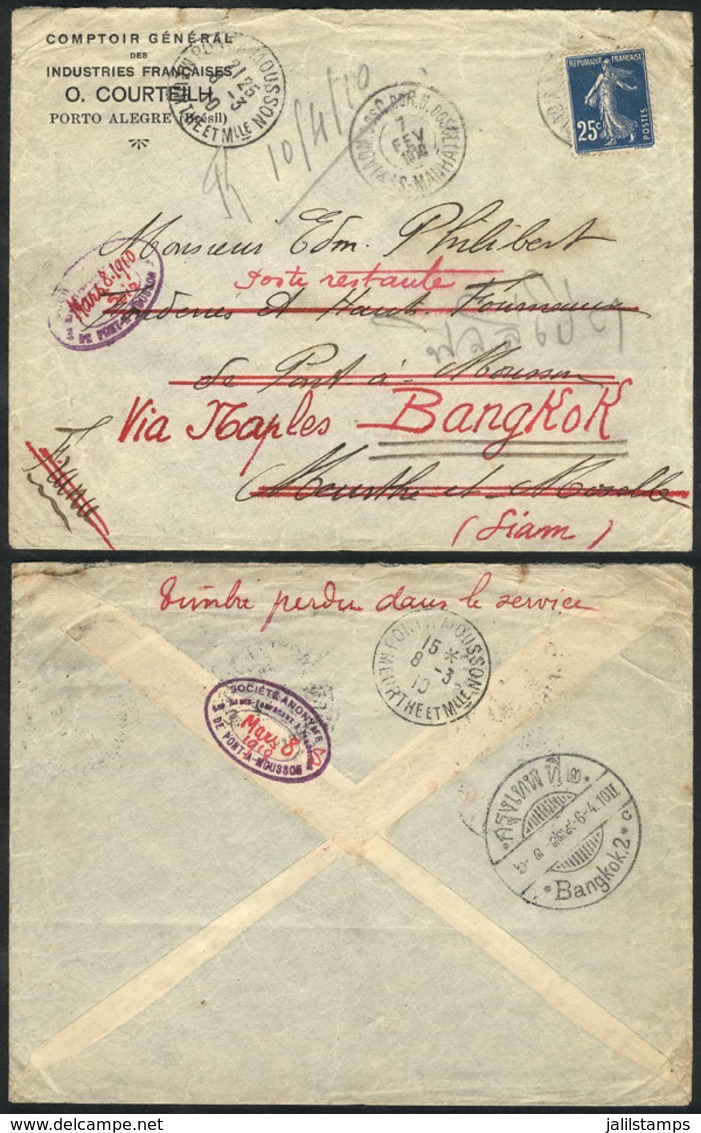 COMPTOIR GÉNÉRAL
DES
INDUSTRIES FRANÇAISES
O. COURTEILH
PORTO ALEGRE (Brésil)
PONT-A-MOUSSON
21 25
8 -3
10
MEURTHE ET Mlle
10/4/10
7
FEV
RÉPUBLIQUE FRANÇAISE
25c
POSTES
Monsieur Edm. Philibert
Poste restante
Mars 8. 1910
DE PONT-A-MOUSSON
Fonderies et Hauts Fourneaux
de Pont à Mousson
Via Naples BANGKOK
Meurthe et Moselle
(Siam)
Timbre perdu dans le service
PONT-A-MOUSSON
15 *
8 -3
10
MEURTHE ET Mlle
SOCIÉTÉ ANONYME
Mars 8
1910
DE PONT-A-MOUSSON
กรุงเทพฯ ที่ ๒
6-4.10 II
Bangkok.2
jalilstamps